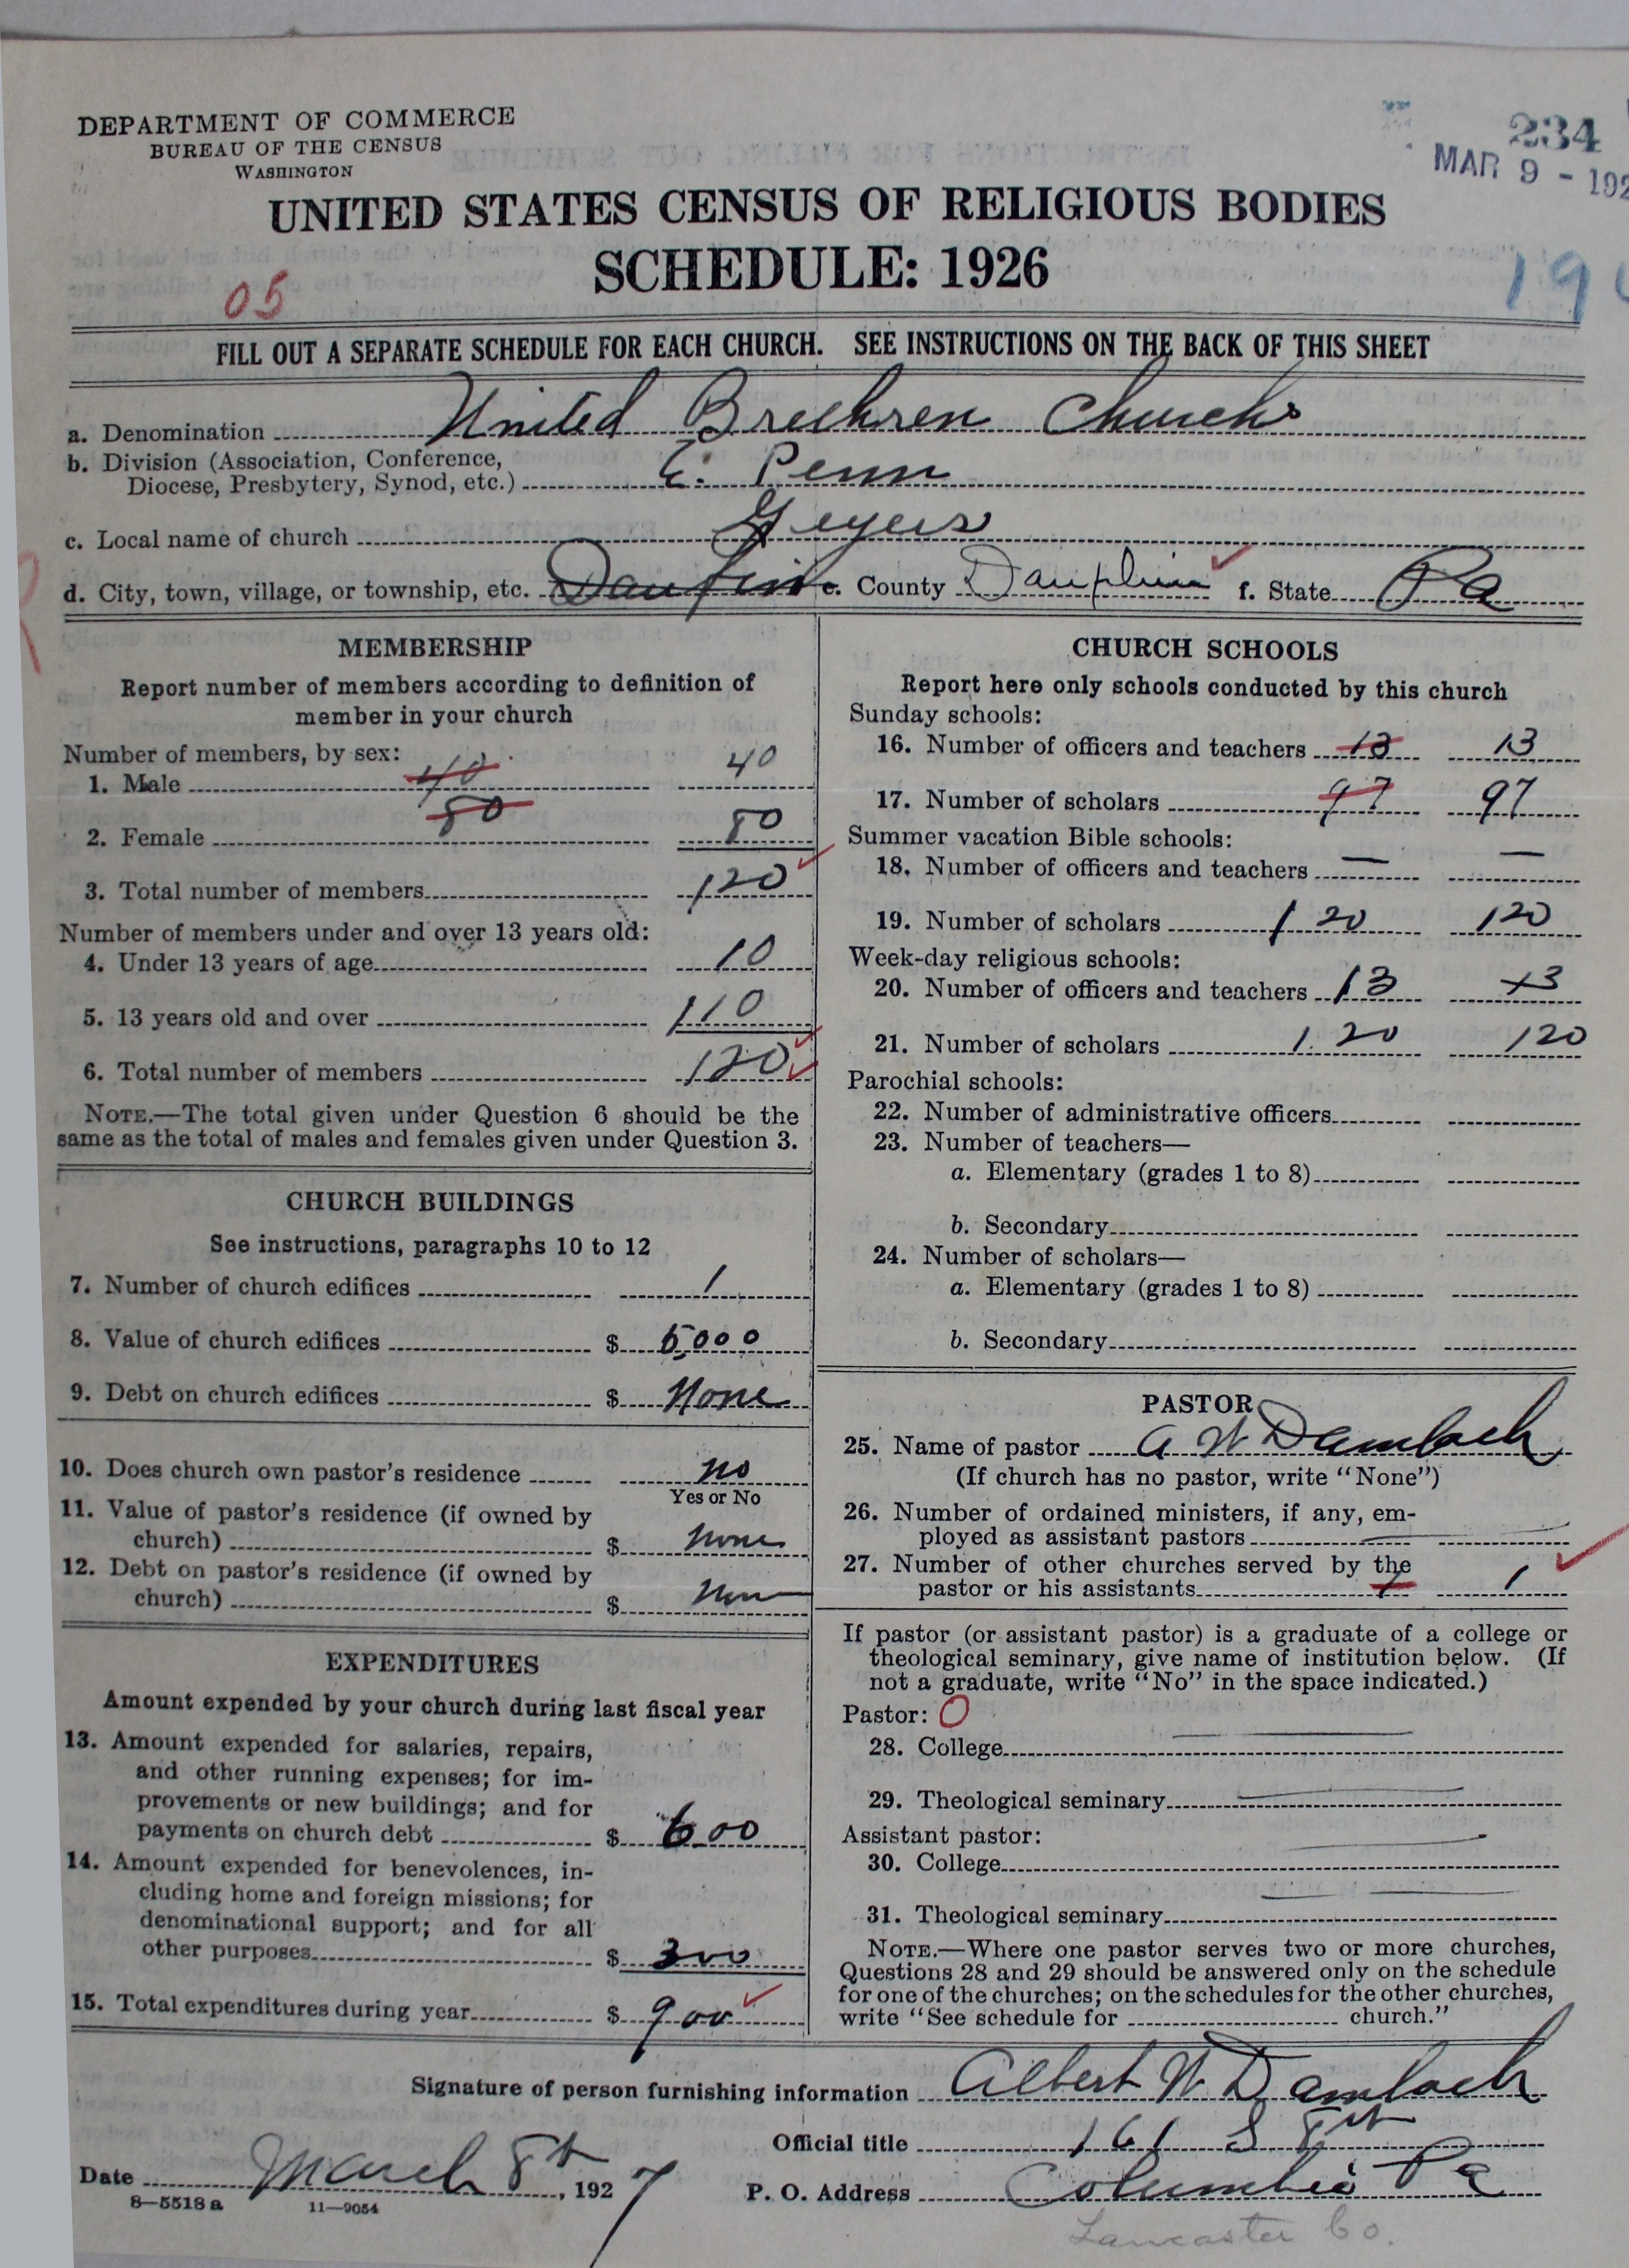 DEPARTMENT OF COMMERCE
BUREAU OF THE CENSUS
WASHINGTON
234
MAR 9 - 192
UNITED STATES CENSUS OF RELIGIOUS BODIES
SCHEDULE: 1926
05
19
FILL OUT A SEPARATE SCHEDULE FOR EACH CHURCH. SEE INSTRUCTIONS ON THE BACK OF THIS SHEET
a. Denomination United Brethren Church
b. Division (Association, Conference,
Diocese, Presbytery, Synod, etc.) E. Penn
c. Local name of church Geyers
d. City, town, village, or township, etc. Daufin e. County Dauphin f. State Pa
MEMBERSHIP
Report number of members according to definition of
member in your church
Number of members, by sex:
1. Male 40 40
2. Female 80 80
3. Total number of members 120
Number of members under and over 13 years old:
4. Under 13 years of age 10
5. 13 years old and over 110
6. Total number of members 120
NOTE.—The total given under Question 6 should be the
same as the total of males and females given under Question 3.
CHURCH BUILDINGS
See instructions, paragraphs 10 to 12
7. Number of church edifices 1
8. Value of church edifices $ 5,000
9. Debt on church edifices $ None
10. Does church own pastor's residence no
Yes or No
11. Value of pastor's residence (if owned by
church) $ none
12. Debt on pastor's residence (if owned by
church) $ non
EXPENDITURES
Amount expended by your church during last fiscal year
13. Amount expended for salaries, repairs,
and other running expenses; for im-
provements or new buildings; and for
payments on church debt $ 600
14. Amount expended for benevolences, in-
cluding home and foreign missions; for
denominational support; and for all
other purposes $ 300
15. Total expenditures during year $ 900
CHURCH SCHOOLS
Report here only schools conducted by this church
Sunday schools:
16. Number of officers and teachers 13 13
17. Number of scholars 97 97
Summer vacation Bible schools:
18. Number of officers and teachers — —
19. Number of scholars 120 120
Week-day religious schools:
20. Number of officers and teachers 13 13
21. Number of scholars 120 120
Parochial schools:
22. Number of administrative officers
23. Number of teachers—
a. Elementary (grades 1 to 8)
b. Secondary
24. Number of scholars—
a. Elementary (grades 1 to 8)
b. Secondary
PASTOR
25. Name of pastor A W Dambach
(If church has no pastor, write "None")
26. Number of ordained ministers, if any, em-
ployed as assistant pastors
27. Number of other churches served by the
pastor or his assistants 1 1
If pastor (or assistant pastor) is a graduate of a college or
theological seminary, give name of institution below. (If
not a graduate, write "No" in the space indicated.)
Pastor: O
28. College
29. Theological seminary
Assistant pastor:
30. College
31. Theological seminary
NOTE.—Where one pastor serves two or more churches,
Questions 28 and 29 should be answered only on the schedule
for one of the churches; on the schedules for the other churches,
write "See schedule for church."
Signature of person furnishing information Albert W Dambach
Official title 161 S 8th
Date March 8th, 1927
P. O. Address Columbia Pa
8—5518 a 11—9054
Lancaster Co.